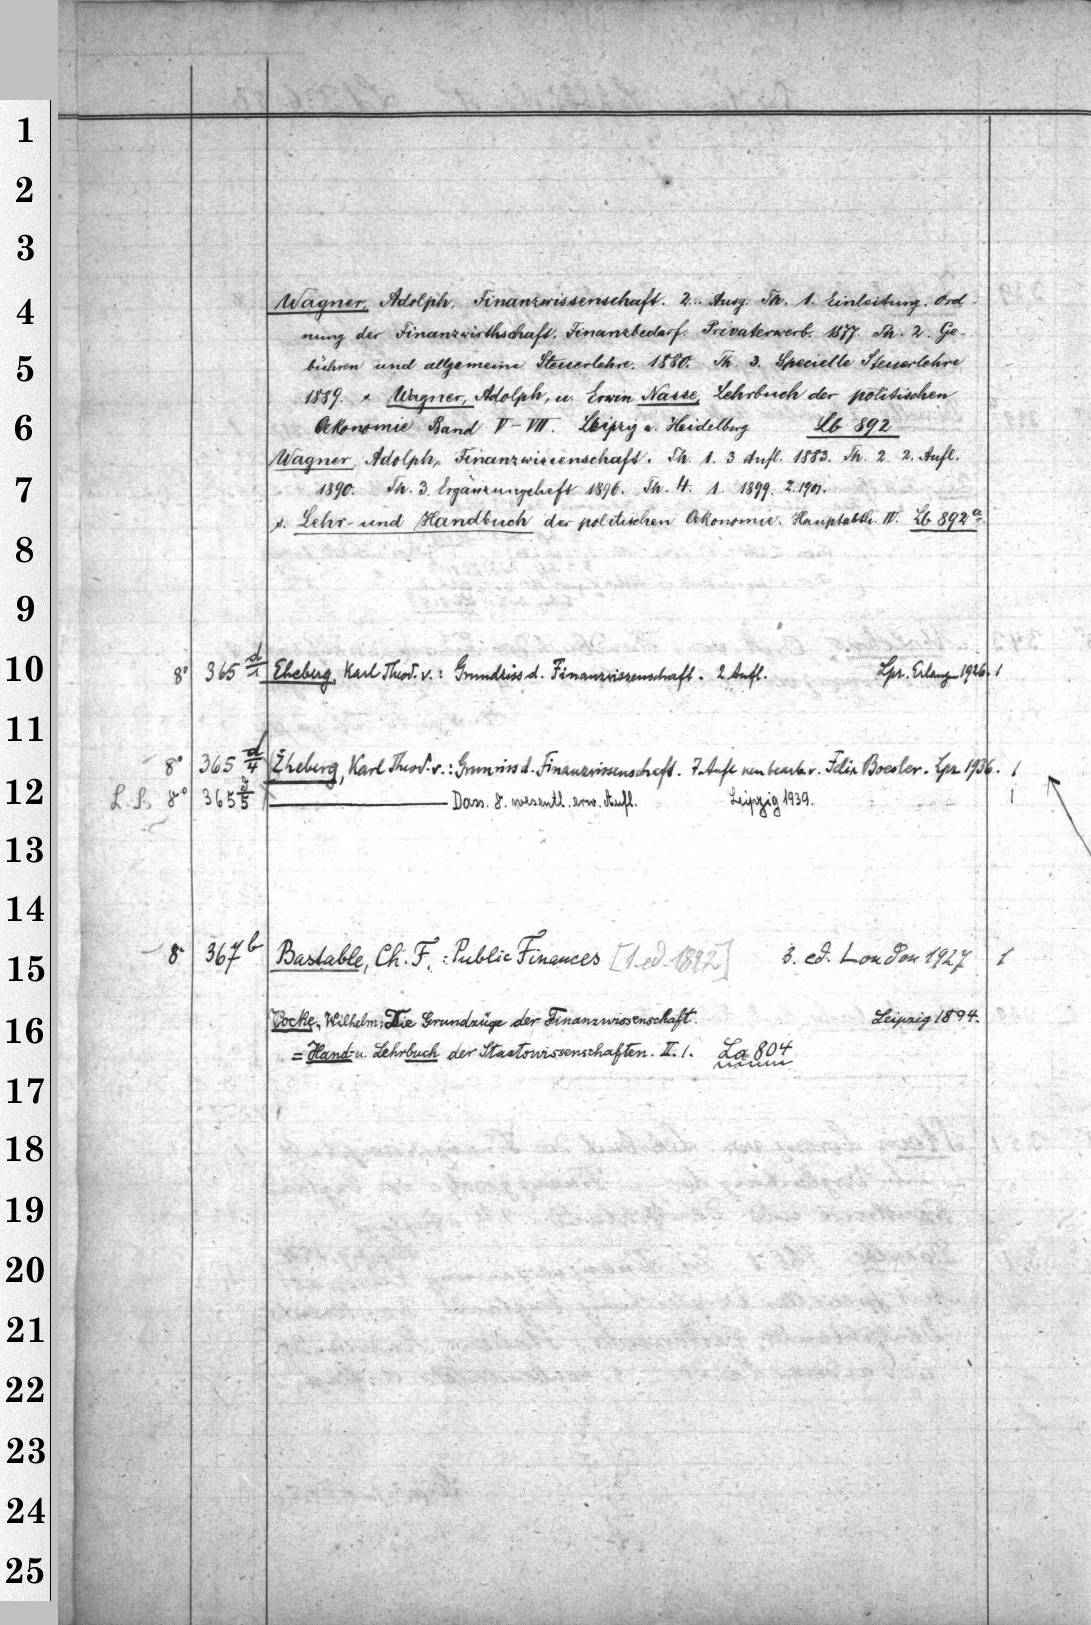 1
2
3
4
5
6
7
8
9
10
11
12
13
14
15
16
17
18
19
20
21
22
23
24
25
Wagner, Adolph. Finanzwissenschaft. 2. Ausg. Th. 1. Einleitung. Ord-
nung der Finanzwirthschaft. Finanzbedarf. Privaterwerb. 1877. Th. 2. Ge-
bühren und allgemeine Steuerlehre. 1880. Th. 3. Specielle Steuerlehre
1889. s. Wagner, Adolph, u. Erwin Nasse, Lehrbuch der politischen
Oekonomie Band V-VII. Leipzig u. Heidelberg Lb 892
Wagner, Adolph, Finanzwissenschaft. Th. 1. 3 Aufl. 1883. Th. 2. 2. Aufl.
1890. Th. 3. Ergänzungsheft 1896. Th. 4. 1. 1899. 2. 1901.
s. Lehr- und Handbuch der politischen Oekonomie. Hauptabth. IV. Lb 892 a.
8° 365 d/1 Eheberg, Karl Theod. v.: Grundriss d. Finanzwissenschaft. 2 Aufl. Lpz. Erlangen 1926. 1
8° 365 d/4 Eheberg, Karl Theod. v.: Grundriss d. Finanzwissenschaft. 7. Aufl. neu bearb. v. Felix Boesler. Lpz 1936. 1
L. S. 8° 365 /5 Dass. 8. wesentl. erw. Aufl. Leipzig 1939. 1
8° 367 b Bastable, Ch. F.: Public Finances [1. ed. 1892] 3. ed. London 1927 1
Vocke, Wilhelm: Die Grundzüge der Finanzwissenschaft. Leipzig 1894.
= Hand- u. Lehrbuch der Staatswissenschaften. II. 1. La 804